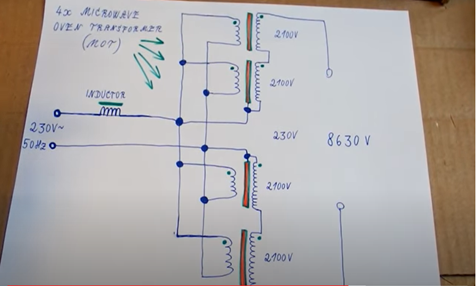 4x MICROWAVE
OVEN TRANSFORMER
(MOT)
INDUCTOR
230V~
50Hz
2100V
2100V
230V
8630 V
2100V
2100V